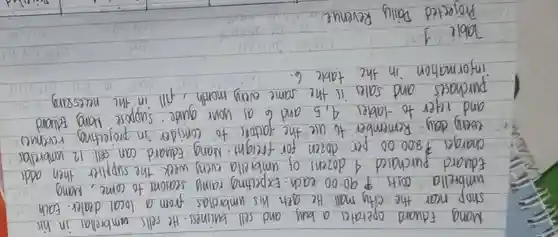 Mang Eduard operates a buy and sell business. He sells umbrellas in his
shop near the city mall. He gets his umbrellas from a local dealer. Each
umbrella costs ₱ 90.00 each. Expecting rainy seasons to come, Mang
Eduard purchased 4 dozens of umbrella every week the supplier then add
charges ₱ 800.00 per dozen for freight. Mang Eduard can sell 12 umbrellas
every day. Remember to use the factors to consider in projecting revenue
and refer to tables 4, 5 and 6 as your guide. Suppose Mang Eduard
purchases and sales is the same every month, fill in the necessary
information in the table 6.
Table 1
Projected Daily Revenue